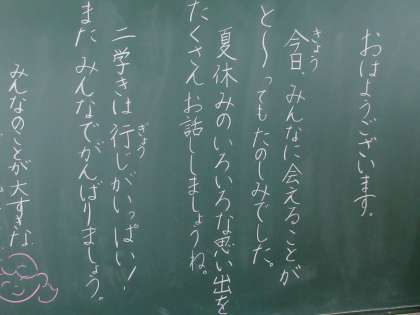 おはようございます。
きょう
今日、みんなに会えることが
と〜ってもたのしみでした。
夏休みのいろいろな思い出を
たくさんお話ししましょうね。
ぎょう
二学きは行じがいっぱい!
またみんなでがんばりましょう。
みんなのことが大すきな